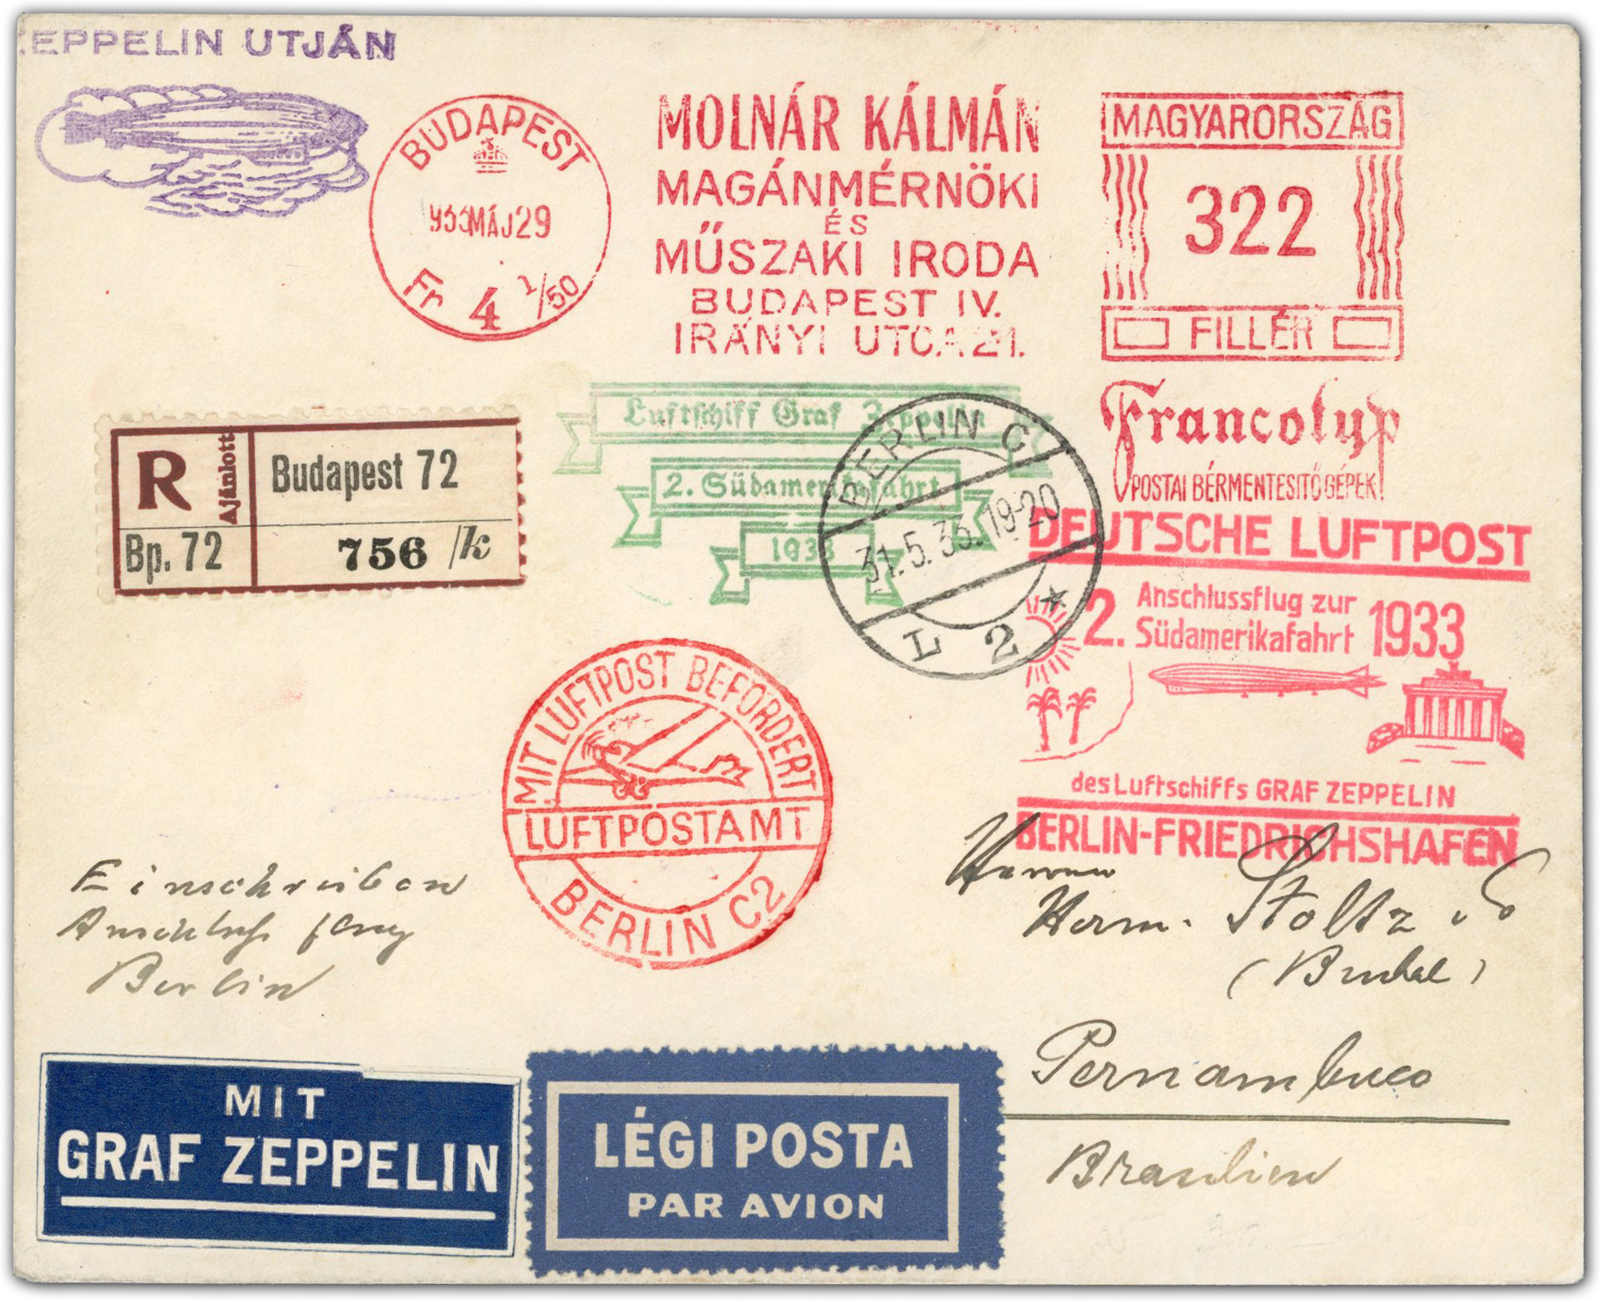 ZEPPELIN UTJÁN
BUDAPEST
933MÁJ29
Fr 4 1/50
MOLNÁR KÁLMÁN
MAGÁNMÉRNÖKI
ÉS
MŰSZAKI IRODA
BUDAPEST IV.
IRÁNYI UTCA 21.
MAGYARORSZÁG
322
FILLÉR
Francotyp
POSTAI BÉRMENTESITŐ GÉPEK
R
Ajánlott
Budapest 72
Bp. 72
756 /k
Luftschiff Graf Zeppelin
2. Südamerikafahrt
1933
BERLIN C
31.5.33.19-20
L 2
DEUTSCHE LUFTPOST
2. Anschlussflug zur
Südamerikafahrt 1933
des Luftschiffs GRAF ZEPPELIN
BERLIN-FRIEDRICHSHAFEN
MIT LUFTPOST BEFÖRDERT
LUFTPOSTAMT
BERLIN C2
Einschreiben
Anschlussflug
Berlin
Herrn
Herm. Stoltz
Pernambuco
Brasilien
MIT
GRAF ZEPPELIN
LÉGI POSTA
PAR AVION